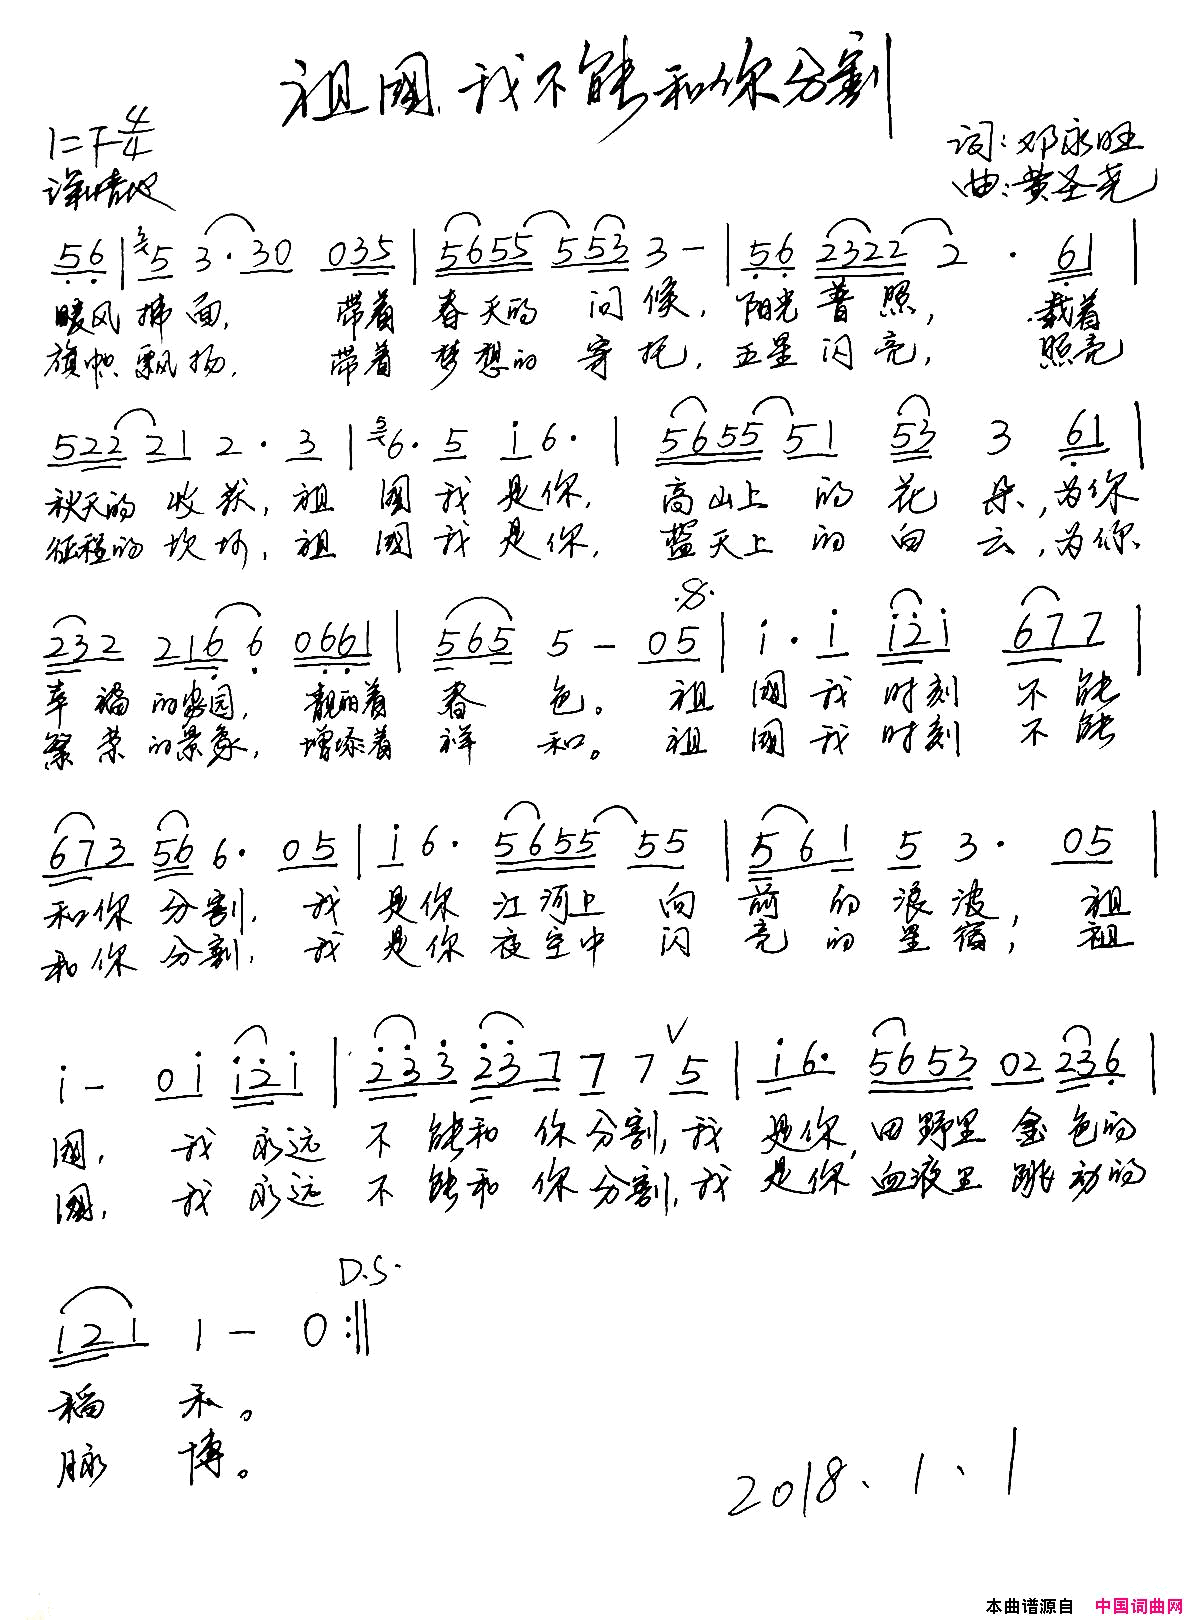 祖國,我不能和你分割
1=F 4/4
词:邓永旺
深情地
曲:黄圣尧
56 | 5 3·30 035 | 5655 553 3 - | 56 2322 2 · 61 |
暖风拂面, 带着 春天的 问候, 阳光普照, 载着
旗帜飘扬, 带着 梦想的 寄托, 五星闪亮, 照亮
522 21 2·3 | 6·5 i 6· | 5655 51 53 3 61 |
秋天的 收获, 祖國我是你, 高山上的花朵, 为你
征程的 坎坷, 祖國我是你, 蓝天上的白云, 为你
232 216 6 0661 | 565 5 - 05 | i·i i2i 677 |
幸福的家园, 靓丽着 春色。 祖國我时刻不能
繁荣的景象, 增添着 祥和。 祖國我时刻不能
673 56 6· 05 | i 6· 5655 55 | 561 5 3· 05 |
和你分割, 我是你江河上向前的浪波, 祖
和你分割, 我是你夜空中闪亮的星宿, 祖
i - 0i i2i | 233 237 7 7 ∨ 5 | i6· 5653 02 236 |
國, 我永远不能和你分割, 我是你,田野里金色的
國, 我永远不能和你分割, 我是你,血液里跳动的
D.S.
i21 1 - 0 :‖
稻禾。
脉博。
2018、1、1
本曲谱源自 中国词曲网